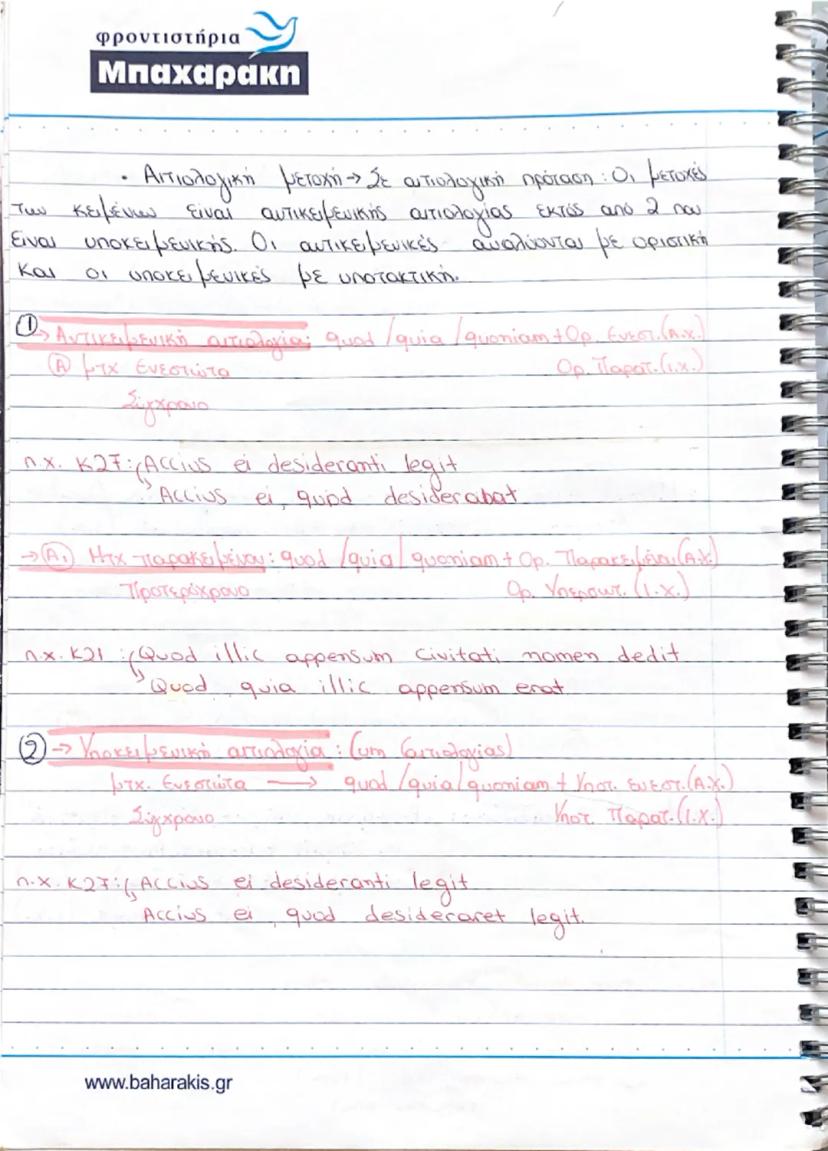 φροντιστήρια
Μπαχαράκη
• Αιτιολογική μετοχή → Σε αιτιολογική πρόταση : Οι μετοχές
των κειμένων είναι αντικειμενικής αιτιολογίας εκτός από 2 που
είναι υποκειμενικής. Οι αντικειμενικές αναλύονται με οριστική
και οι υποκειμενικές με υποτακτική.
① → Αντικειμενική αιτιολογία: quod /quia /quoniam + Ορ. Ενεστ.(Α.Χ.)
Ⓐ μτχ Ενεστώτα Ορ. Παρατ.(Ι.Χ.)
Σύγχρονο
π.χ. Κ27: Accius ei desideranti legit
↳ Accius ei, quod desiderabat
→ (Α₁) Μτχ παρακειμένου: quod /quia/ quoniam + Ορ. Παρακειμένου(Α.Χ)
Προτερόχρονο Ορ. Υπερσυντ. (Ι.Χ.)
π.χ. Κ21 : Quod illic appensum civitati nomen dedit
↳ Quod, quia illic appensum erat
② → Υποκειμενική αιτιολογία : Cum (αιτιολογίας)
μτχ. Ενεστώτα → quod /quia/quoniam + Υποτ. ενεστ.(Α.Χ.)
Σύγχρονο Υποτ. Παρατ.(Ι.Χ.)
π.χ. Κ27: Accius ei desideranti legit
↳ Accius ei, quod desideraret legit.
www.baharakis.gr